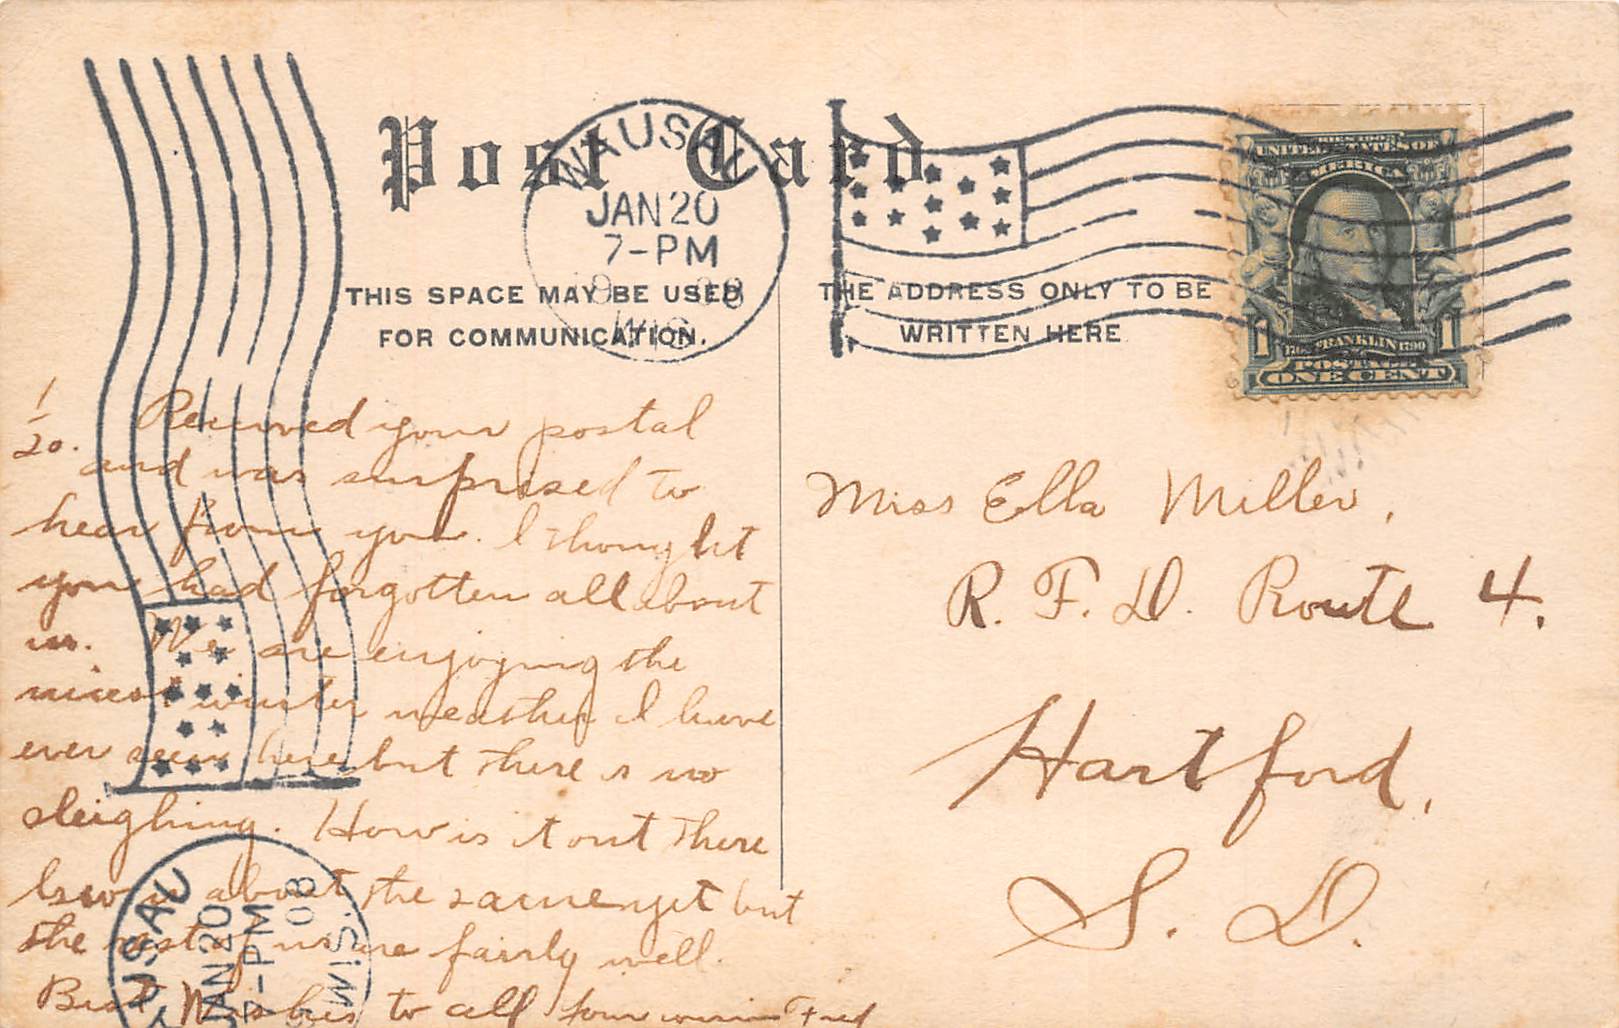 Post Card
WAUSAU
JAN 20
7-PM
WIS.
THIS SPACE MAY BE USED
FOR COMMUNICATION.
THE ADDRESS ONLY TO BE
WRITTEN HERE
SERIES 1902
UNITED STATES OF
AMERICA
1 1706 FRANKLIN 1790 1
POSTAGE
ONE CENT
1/20.
Received your postal
and was surprised to
hear from you. I thought
you had forgotten all about
us. We are enjoying the
nicest winter weather I have
ever seen here but there is no
sleighing. How is it out there
is about the same yet but
the rest of us are fairly well.
Best Wishes to all from Fred
Miss Ella Miller,
R. F. D. Route 4.
Hartford,
S. D.
WAUSAU
JAN 20
7-PM
08
WIS.